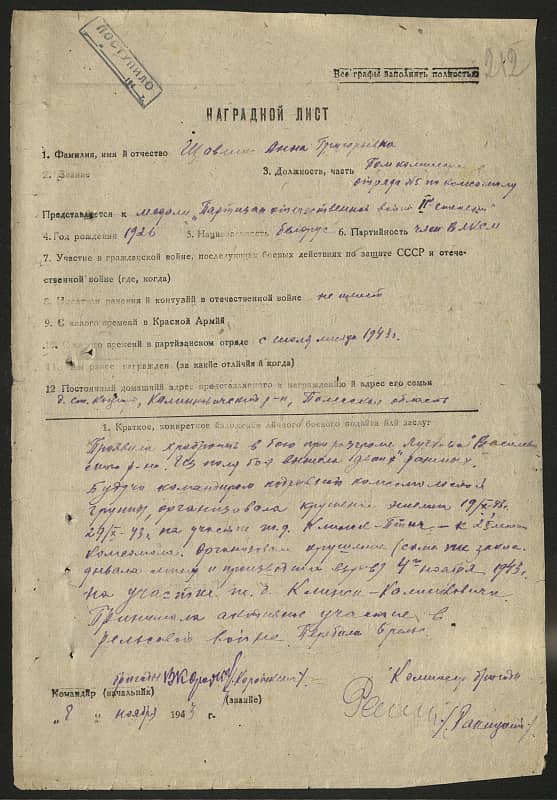 ПОСТУПИЛО
Все графы заполнять полностью
212
НАГРАДНОЙ ЛИСТ
1. Фамилия, имя и отчество Анна Григорьевна
2. Звание 3. Должность, часть
отряда №5 по комсомолу
Представляется к медали "Партизан отечественной войны II степени"
4. Год рождения 1926 5. Национальность белорус 6. Партийность член ВЛКСМ
7. Участие в гражданской войне, последующих боевых действиях по защите СССР и отече-
ственной войне (где, когда)
8. Имеет ли ранения и контузии в отечественной войне не имеет
9. С какого времени в Красной Армии
10. С какого времени в партизанском отряде с июля месяца 1943 г.
11. Чем ранее награжден (за какие отличия и когда)
12 Постоянный домашний адрес представляемого к награждению и адрес его семьи
д. ст. Калинковичский р-н, Полесская область
1. Краткое, конкретное изложение личного боевого подвига или заслуг
Проявила храбрость в бою при разгроме Василеви-
ского р-на. Из поля боя вынесла раненых.
Будучи командиром подрывной комсомольской
группы, организовала крушения 19/X-43г.
29/X-43г. на участке ж.д. Клинск-Птичь - к 25 летию
комсомола. Организовала крушение (сама же закла-
дывала мину и производила взрыв) 4го ноября 1943г.
на участке ж.д. Клинск-Калинковичи
Принимала активное участие в
рельсовой войне.
бригады (Короткин)
Командир (начальник) (звание)
Комиссар бригады
"8" ноября 1943 г.
(Ракицкий)